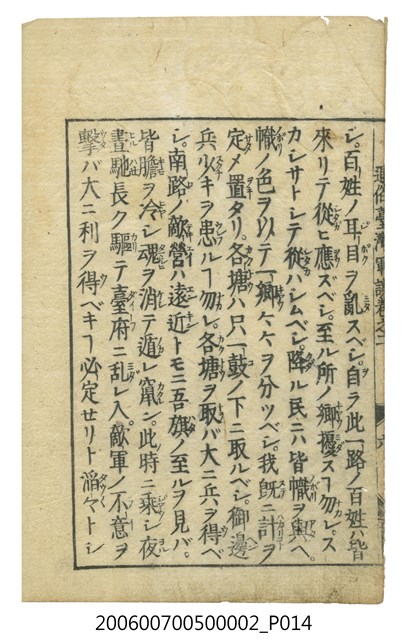 シ。百姓ノ耳目ヲ亂スベシ。自ラ此一路ノ百姓ハ皆
來リテ從ヒ應ズベシ。至ル所ノ鄉擾スヿ勿レ。ス
カシサトシテ從ハシムベシ。降ル民ニハ皆幟ヲ與ヘ。
幟ノ色ヲ以テ一鄉々々ヲ分ツベシ。我既ニ計ヲ
定メ置タリ。各塘ハ只一鼓ノ下ニ取ルベシ。御邊
兵少キヲ患ルヿ勿レ。各塘ヲ取バ大ニ兵ヲ得ベ
シ。南路ノ敵營ハ遠近トモニ吾旗ノ至ルヲ見バ。
皆膽ヲ冷シ魂ヲ消テ遁レ竄ン。此時ニ乘シ夜
晝馳長ク驅テ臺府ニ乱レ入。敵軍ノ不意ヲ
擊バ大ニ利ヲ得ベキヿ必定セリト滔々トシ
通俗臺灣軍談卷之二
六
200600700500002_P014